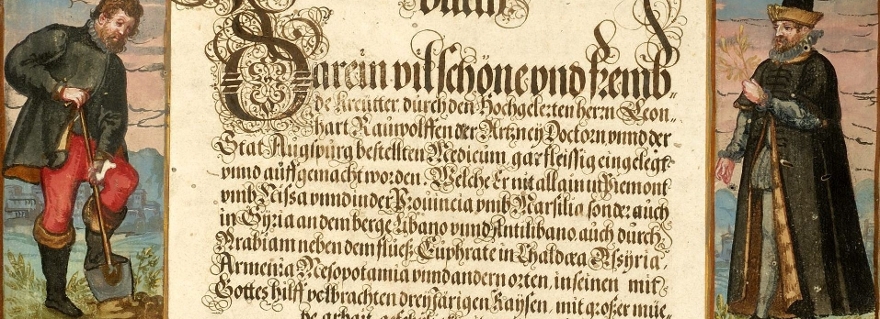 Darein vil schöne vnd fremb-
de Kreütter durch den Hochgelerten herrn Leon-
hart Rauwolffen der Artzney Doctorn vnnd der
Stat Augspurg bestellten Medicum gar fleissig eingelegt
vnnd auffgemacht worden. Welche Er nit allain in Piemont
vmb Nissa vnnd in der Prouincia vmb Marsilia sonder auch
in Syria an dem berge Libano vnnd Antilibano, auch durch
Arabiam neben dem flusz Euphrate in Chaldæa Assyria,
Armenia Mesopotamia vnnd andern orten, in seinen mit
Gottes hilff volbrachten dreyjärigen Raysen, mit großer müe-